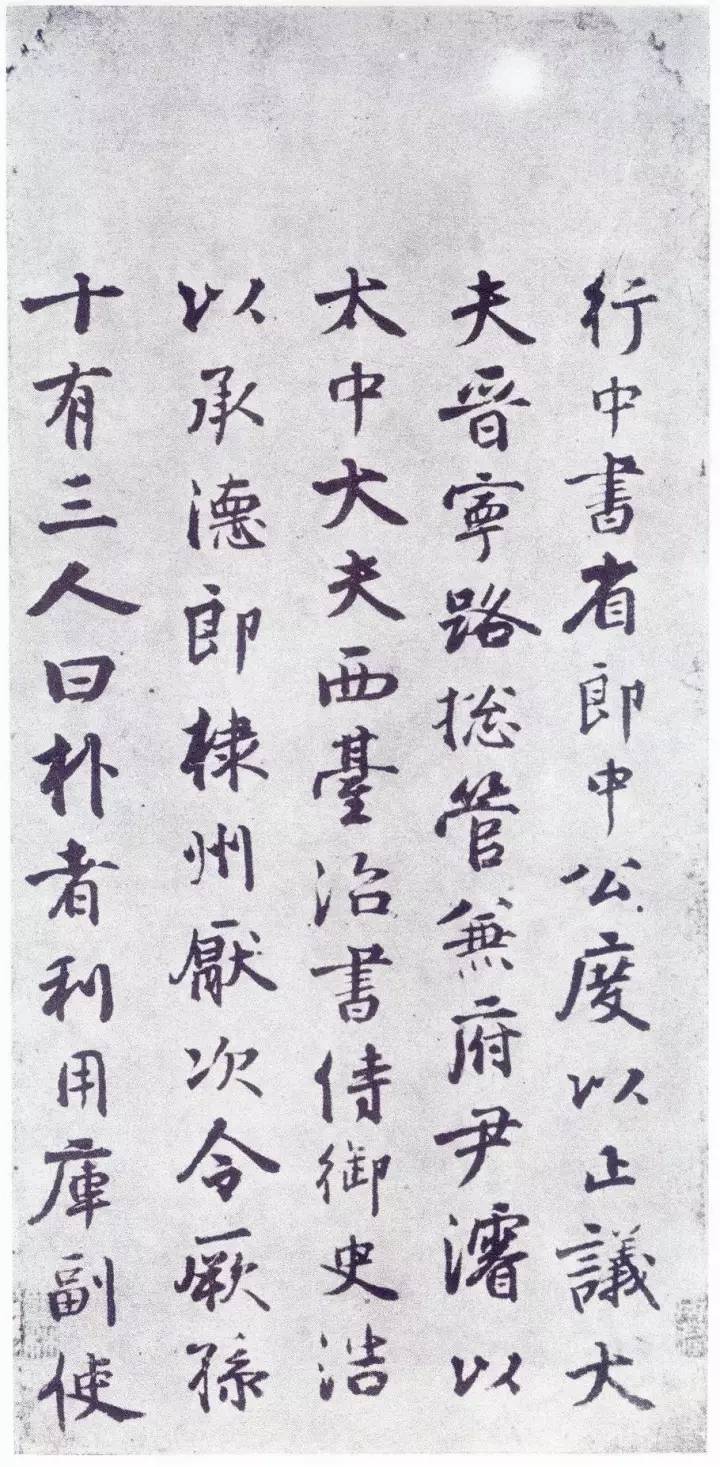 行中書省郎中公度以正議大
夫晉寧路捴管兼府尹濬以
太中大夫西臺治書侍御史浩
以承德郎棣州厭次令厥孫
十有三人曰朴者利用庫副使